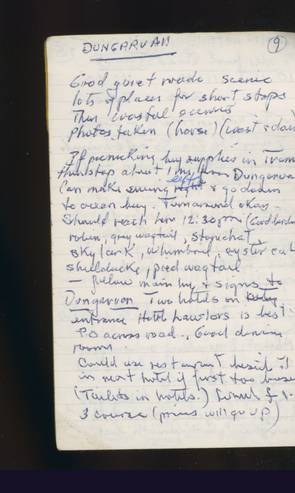 DUNGARVAN
9
Good quiet roads scenic
lots of places for short stops
Then coastal scenics
Photos taken (horse) (coast &
If picnicking buy supplies in Tram
then stop about 1 Dungarvan
Can make swing left & go down
to ocean buy. Turnaround okay.
Should reach here 12:30pm
robin, grey wagtail, stonechat,
skylark, whimbrel, oyster cat
shelducks, pied wagtail
— follow main hwy & signs to
Dungarvan Two hotels on
entrance Hotel Lawlors is best
across road. Good dining
room.
Could use restaurant beside it
in next hotel if first too busy
(Toilets in hotels.)
3 course (prices will go up)